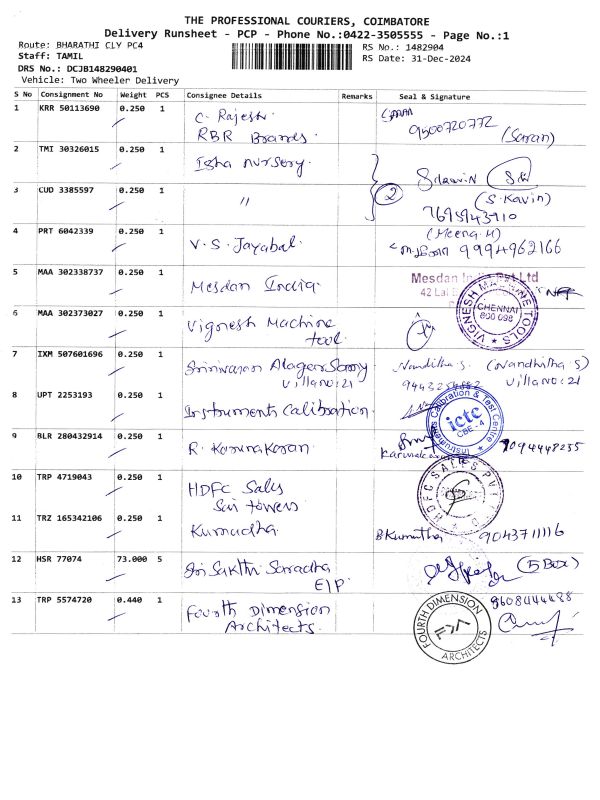 THE PROFESSIONAL COURIERS, COIMBATORE
Delivery Runsheet - PCP - Phone No.:0422-3505555 - Page No.:1
Route: BHARATHI CLY PC4
RS No.: 1482904
Staff: TAMIL
RS Date: 31-Dec-2024
DRS No.: DCJB148290401
Vehicle: Two Wheeler Delivery
S No Consignment No Weight PCS Consignee Details Remarks Seal & Signature
1 KRR 50113690 0.250 1 C. Rajesh
RBR Brands. 9500720772 (Saran)
2 TMI 30326015 0.250 1 Isha nursery.
3 CUD 3385597 0.250 1 " 2 (S.Kavin)
4 PRT 6042339 0.250 1 V.S. Jayabal (Meena.M)
9994962166
5 MAA 302338737 0.250 1 Mesdan India Mesdan India Pvt Ltd
6 MAA 302373027 0.250 1 Vignesh Machine
tool. VIGNESH MACHINE TOOLS CHENNAI 600 098
7 IXM 507601696 0.250 1 Srinivasan Alagar Samy Nanditha.S (Nandhitha.S)
Villa no: 21 Villa no: 21
8 UPT 2253193 0.250 1 Instruments Calibration. Instruments Calibration & Test Centre ictc CBE-4
9 BLR 280432914 0.250 1 R. Karunakaran. 9094448235
10 TRP 4719043 0.250 1 HDFC Sales
Sai towers HDFC SALES PVT
11 TRZ 165342106 0.250 1 Kumudha B Kumutha 9043711116
12 HSR 77074 73.000 5 Sri Sakthi Saradha
EIP. (5 Box)
13 TRP 5574720 0.440 1 Fourth Dimension
Architects. FOURTH DIMENSION ARCHITECTS 9608444488